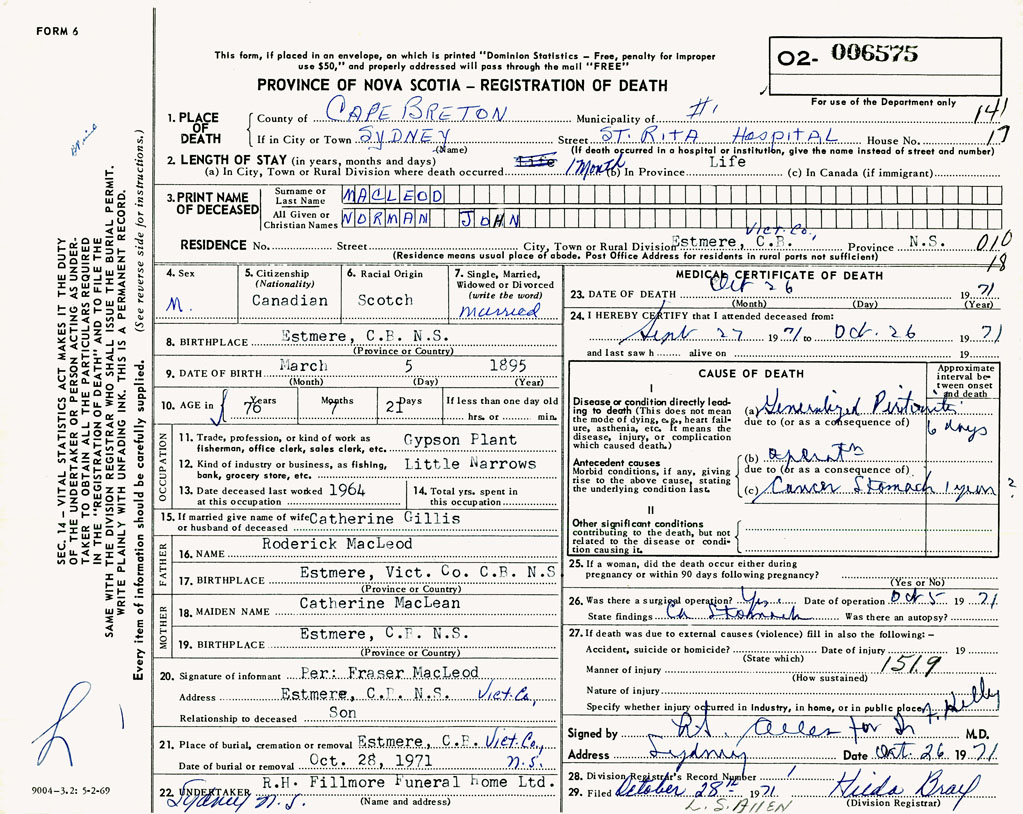 FORM 6
This form, if placed in an envelope, on which is printed "Dominion Statistics – Free, penalty for improper
use $50," and properly addressed will pass through the mail "FREE"
O2- 006575
PROVINCE OF NOVA SCOTIA – REGISTRATION OF DEATH
For use of the Department only
1. PLACE OF DEATH
County of CAPE BRETON Municipality of #1 141
If in City or Town SYDNEY Street ST. RITA HOSPITAL House No. 17
(Name) (If death occurred in a hospital or institution, give the name instead of street and number)
2. LENGTH OF STAY (in years, months and days)
(a) In City, Town or Rural Division where death occurred Life 1 Month (b) In Province Life (c) In Canada (if immigrant)
3. PRINT NAME OF DECEASED
Surname or Last Name MACLEOD
All Given or Christian Names NORMAN JOHN
Vict. Co,
RESIDENCE No. Street City, Town or Rural Division Estmere, C.B. Province N.S. 010
(Residence means usual place of abode. Post Office Address for residents in rural parts not sufficient) 18
4. Sex M.
5. Citizenship (Nationality) Canadian
6. Racial Origin Scotch
7. Single, Married, Widowed or Divorced (write the word) married
8. BIRTHPLACE Estmere, C.B. N.S.
(Province or Country)
9. DATE OF BIRTH March 5 1895
(Month) (Day) (Year)
10. AGE in Years 76 Months 7 Days 21 If less than one day old
hrs. or min.
OCCUPATION
11. Trade, profession, or kind of work as fisherman, office clerk, sales clerk, etc. Gypson Plant
12. Kind of industry or business, as fishing, bank, grocery store, etc. Little Narrows
13. Date deceased last worked at this occupation 1964
14. Total yrs. spent in this occupation
15. If married give name of wife or husband of deceased Catherine Gillis
FATHER
16. NAME Roderick MacLeod
17. BIRTHPLACE Estmere, Vict. Co. C.B. N.S
(Province or Country)
MOTHER
18. MAIDEN NAME Catherine MacLean
19. BIRTHPLACE Estmere, C.B. N.S.
(Province or Country)
20. Signature of informant Per: Fraser MacLeod
Address Estmere, C.B. N.S. Vict. Co,
Relationship to deceased Son
21. Place of burial, cremation or removal Estmere, C.B. Vict. Co,
Date of burial or removal Oct. 28, 1971 N.S.
22. UNDERTAKER R.H. Fillmore Funeral Home Ltd.
Sydney N.S. (Name and address)
MEDICAL CERTIFICATE OF DEATH
23. DATE OF DEATH Oct 26 1971
(Month) (Day) (Year)
24. I HEREBY CERTIFY that I attended deceased from:
Sept 27 1971 to Oct. 26 1971
and last saw h alive on 19
CAUSE OF DEATH
Approximate interval between onset and death
I
Disease or condition directly leading to death (This does not mean the mode of dying, e.g., heart failure, asthenia, etc. It means the disease, injury, or complication which caused death.)
(a) Generalized 6 days
due to (or as a consequence of)
Antecedent causes
Morbid conditions, if any, giving rise to the above cause, stating the underlying condition last.
(b)
due to (or as a consequence of)
(c) Cancer Stomach 1 year ?
II
Other significant conditions
contributing to the death, but not related to the disease or condition causing it.
25. If a woman, did the death occur either during
pregnancy or within 90 days following pregnancy?
(Yes or No)
26. Was there a surgical operation? Yes. Date of operation Oct 5 1971
State findings Ca Stomach Was there an autopsy?
27. If death was due to external causes (violence) fill in also the following: –
Accident, suicide or homicide? Date of injury 19
(State which)
Manner of injury 151.9
(How sustained)
Nature of injury
Specify whether injury occurred in industry, in home, or in public place
Signed by for Dr F. Kelly M.D.
Address Sydney Date Oct. 26 1971
28. Division Registrar's Record Number 1
29. Filed October 28th 1971 Hilda Bray
L.S. ALLEN (Division Registrar)
SEC. 14 – VITAL STATISTICS ACT MAKES IT THE DUTY
OF THE UNDERTAKER OR PERSON ACTING AS UNDERTAKER
TO OBTAIN ALL THE PARTICULARS REQUIRED
IN THE "REGISTRATION OF DEATH" AND TO FILE THE
SAME WITH THE DIVISION REGISTRAR WHO SHALL ISSUE THE BURIAL PERMIT.
WRITE PLAINLY WITH UNFADING INK. THIS IS A PERMANENT RECORD.
Every item of information should be carefully supplied. (See reverse side for instructions.)
9004-3.2: 5-2-69